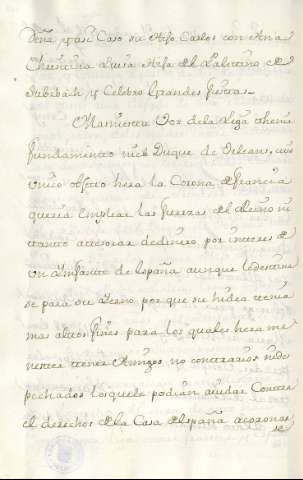 y así Caso su Hijo Carlos con Ana
Christina Luisa Hija del Palatino de
y Celebro Grandes fiestas_
Mas nuestra Voz de la Liga thenia
fundamento ni el Duque de Orleans, cuio
unico obgetto hera la Corona de francia
queria Emplear las fuerzas del Reino ni
tantto attesorar de dinero por interes de
un Infantte de España aunque le destina
se para su Ierno, por que su hidea ttenia
mas alttos fines para los quales hera me
nester ttener Amigos no conttrarios ni des
pechados los que le podian aiudar Conttra
el derechos de la Casa de España a coronar
se